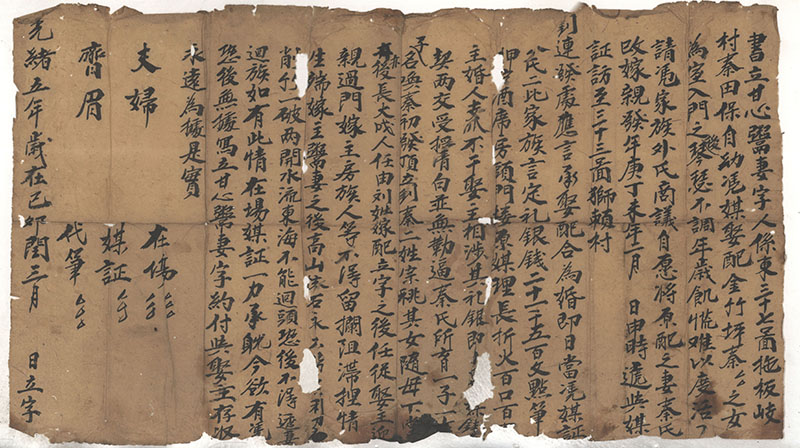 書立甘心鬻妻字人係東三十七啚拖板岐
村秦田保自納憑媒娶配金竹坪秦々々之女
為室入門之後琴瑟不調年歲飢慌难以度活
請憑家族外氏商議自愿将原配之妻秦氏
改嫁親發年庚丁未年二月 日申時遣與媒
証訪至三十三啚獅賴村
到連發處應言承娶配合為婚即日當憑媒証
人民二比家族言定礼銀錢二十一千五百文點筆
押字酒席香頭門 原媒理長折火百口百
主婚人 不干娶主相涉其礼銀即
契兩交受授清白並無勒逼秦氏所育一子
子名喚秦初發頂立刘秦二姓宗祧其女隨母下堂
日後長大成人任由刘姓嫁配立字之後任從娶主迎
親過門嫁主房族人等不淂留攔阻滯捏情
生端嫁主鬻妻之後高山滾石永不
削竹一破兩開水流東海不能迴頭恐後不淂
迴族如有此情在場媒証一力承躭今欲有憑
恐後無據寫立甘心鬻妻字約付與娶主存收
永遠為據是實
夫婦
齊眉
在傷
媒証
代筆
光緒五年歲在己卯閏三月 日立字